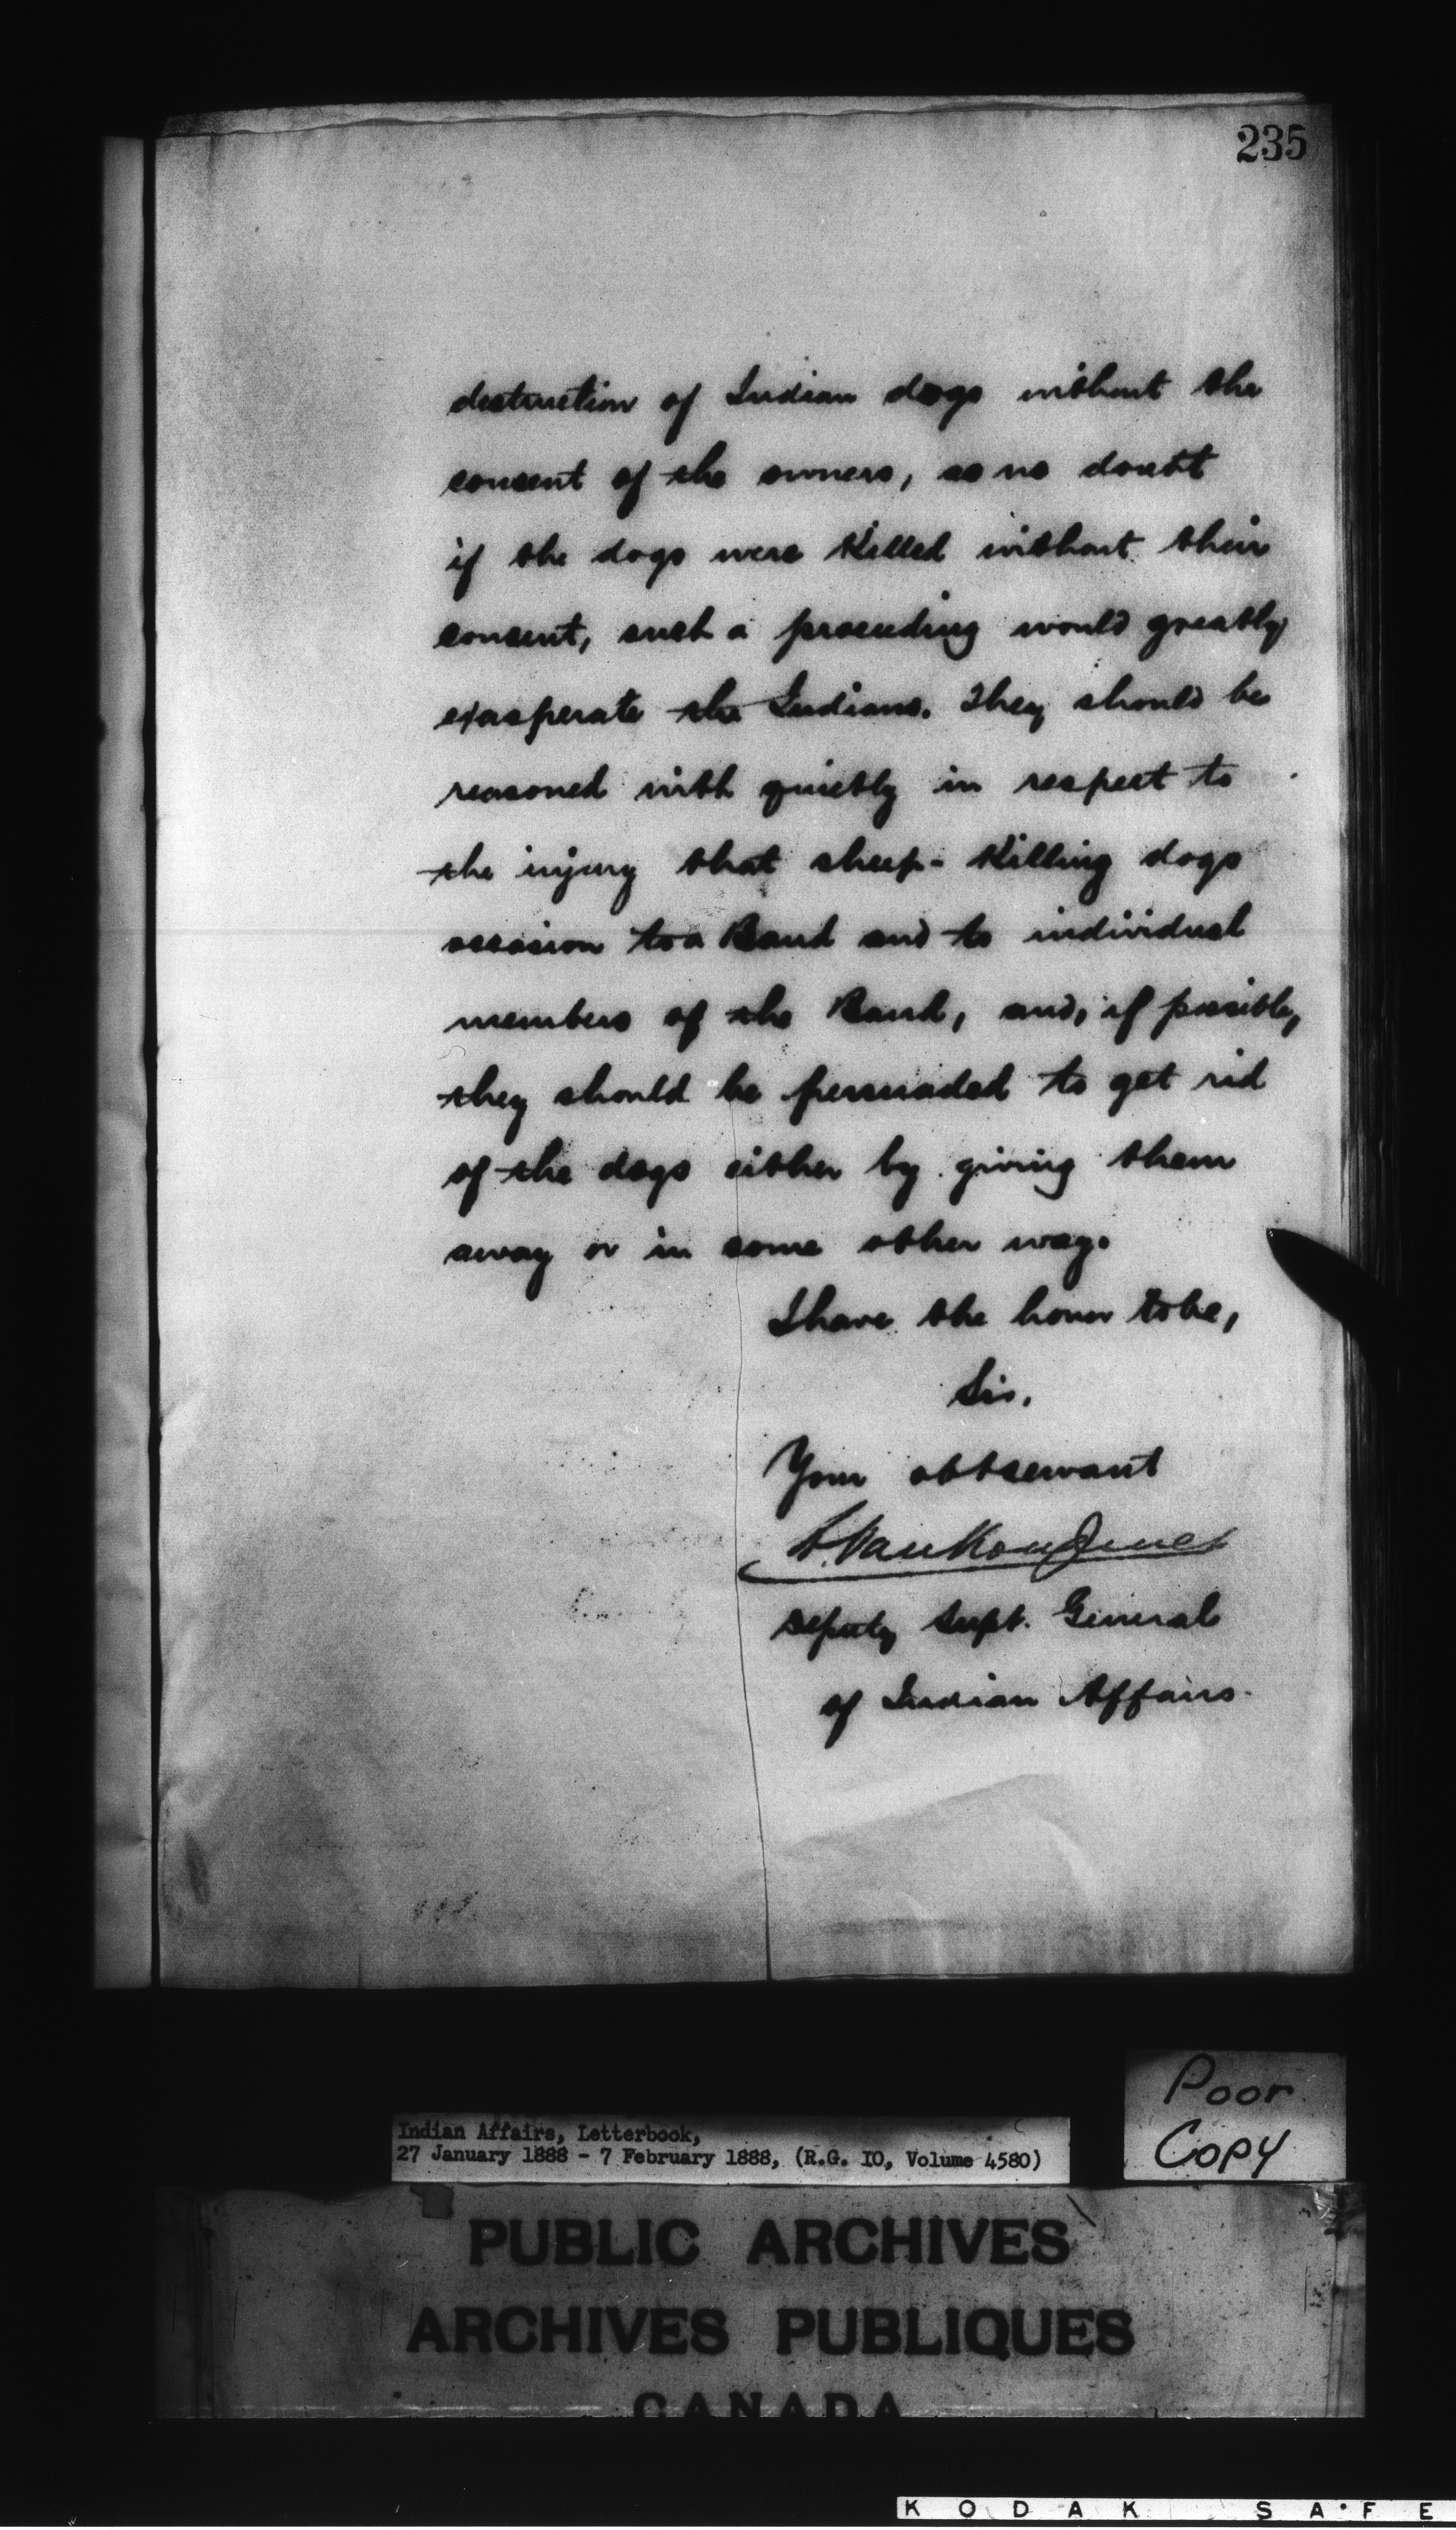 235
destruction of Indian dogs without the
consent of the owners, as no doubt
if the dogs were killed without their
consent, such a proceeding would greatly
exasperate the Indians. They should be
reasoned with quietly in respect to
the injury that sheep-killing dogs
occasion to a Band and to individual
members of the Band, and, if possible,
they should be persuaded to get rid
of the dogs either by giving them
away or in some other way.
I have the honor to be,
Sir,
Your obt servant
L. VanKoughnet
Deputy Supt. General
of Indian Affairs.
Poor
Copy
Indian Affairs, Letterbook,
27 January 1888 - 7 February 1888, (R.G. IO, Volume 4580)
PUBLIC ARCHIVES
ARCHIVES PUBLIQUES
CANADA
KODAK SAFE